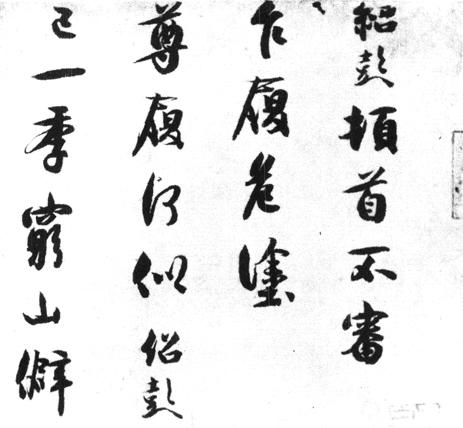 紹彭頓首不審
乍履危塗
尊履何似紹彭
已一季窮山僻